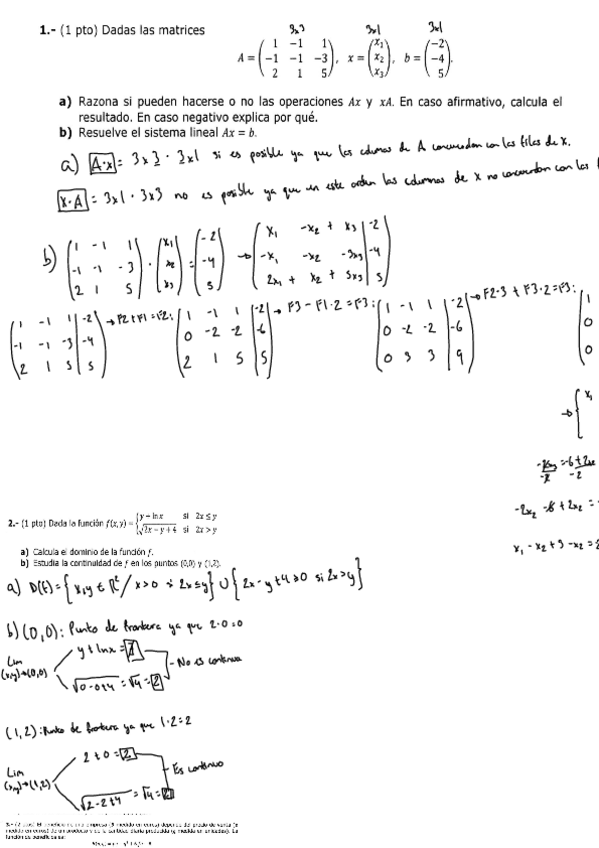 1.- (1 pto) Dadas las matrices
3x3 3x1 3x1
A = ( 1 -1 1 ; -1 -1 -3 ; 2 1 5 ), x = ( x₁ ; x₂ ; x₃ ), b = ( -2 ; -4 ; 5 ).
a) Razona si pueden hacerse o no las operaciones Ax y xA. En caso afirmativo, calcula el
resultado. En caso negativo explica por qué.
b) Resuelve el sistema lineal Ax = b.
a) A·x = 3x3 · 3x1 si es posible ya que las columnas de A concuerdan con las filas de x.
x·A = 3x1 · 3x3 no es posible ya que en este orden las columnas de x no concuerdan con las
b) ( 1 -1 1 ; -1 -1 -3 ; 2 1 5 ) · ( x₁ ; x₂ ; x₃ ) = ( -2 ; -4 ; 5 ) → ( x₁ -x₂ + x₃ | -2 ; -x₁ -x₂ -3x₃ | -4 ; 2x₁ + x₂ + 5x₃ | 5 )
( 1 -1 1 | -2 ; -1 -1 -3 | -4 ; 2 1 5 | 5 ) → F2+F1=F2: ( 1 -1 1 | -2 ; 0 -2 -2 | -6 ; 2 1 5 | 5 ) → F3-F1·2=F3: ( 1 -1 1 | -2 ; 0 -2 -2 | -6 ; 0 3 3 | 9 ) → F2·3 + F3·2=F3: ( 1 ; 0 ; 0
→ { x₁
-2x₂ -6 + 2x₂ =
x₁ - x₂ + 3 - x₂ =
2.- (1 pto) Dada la función f(x,y) = { y + ln x si 2x ≤ y ; √(2x - y + 4) si 2x > y
a) Calcula el dominio de la función f.
b) Estudia la continuidad de f en los puntos (0,0) y (1,2).
a) D(f) = { x,y ∈ R² / x>0 si 2x≤y } ∪ { 2x-y+4≥0 si 2x>y }
b) (0,0): Punto de frontera ya que 2·0=0
Lim (x,y)→(0,0)
y + lnx =
- No es continua
√0-0+4 = √4 = 2
(1,2): Punto de frontera ya que 1·2=2
Lim (x,y)→(1,2)
2 + 0 = 2
- Es continuo
√2-2+4 = √4 = 2